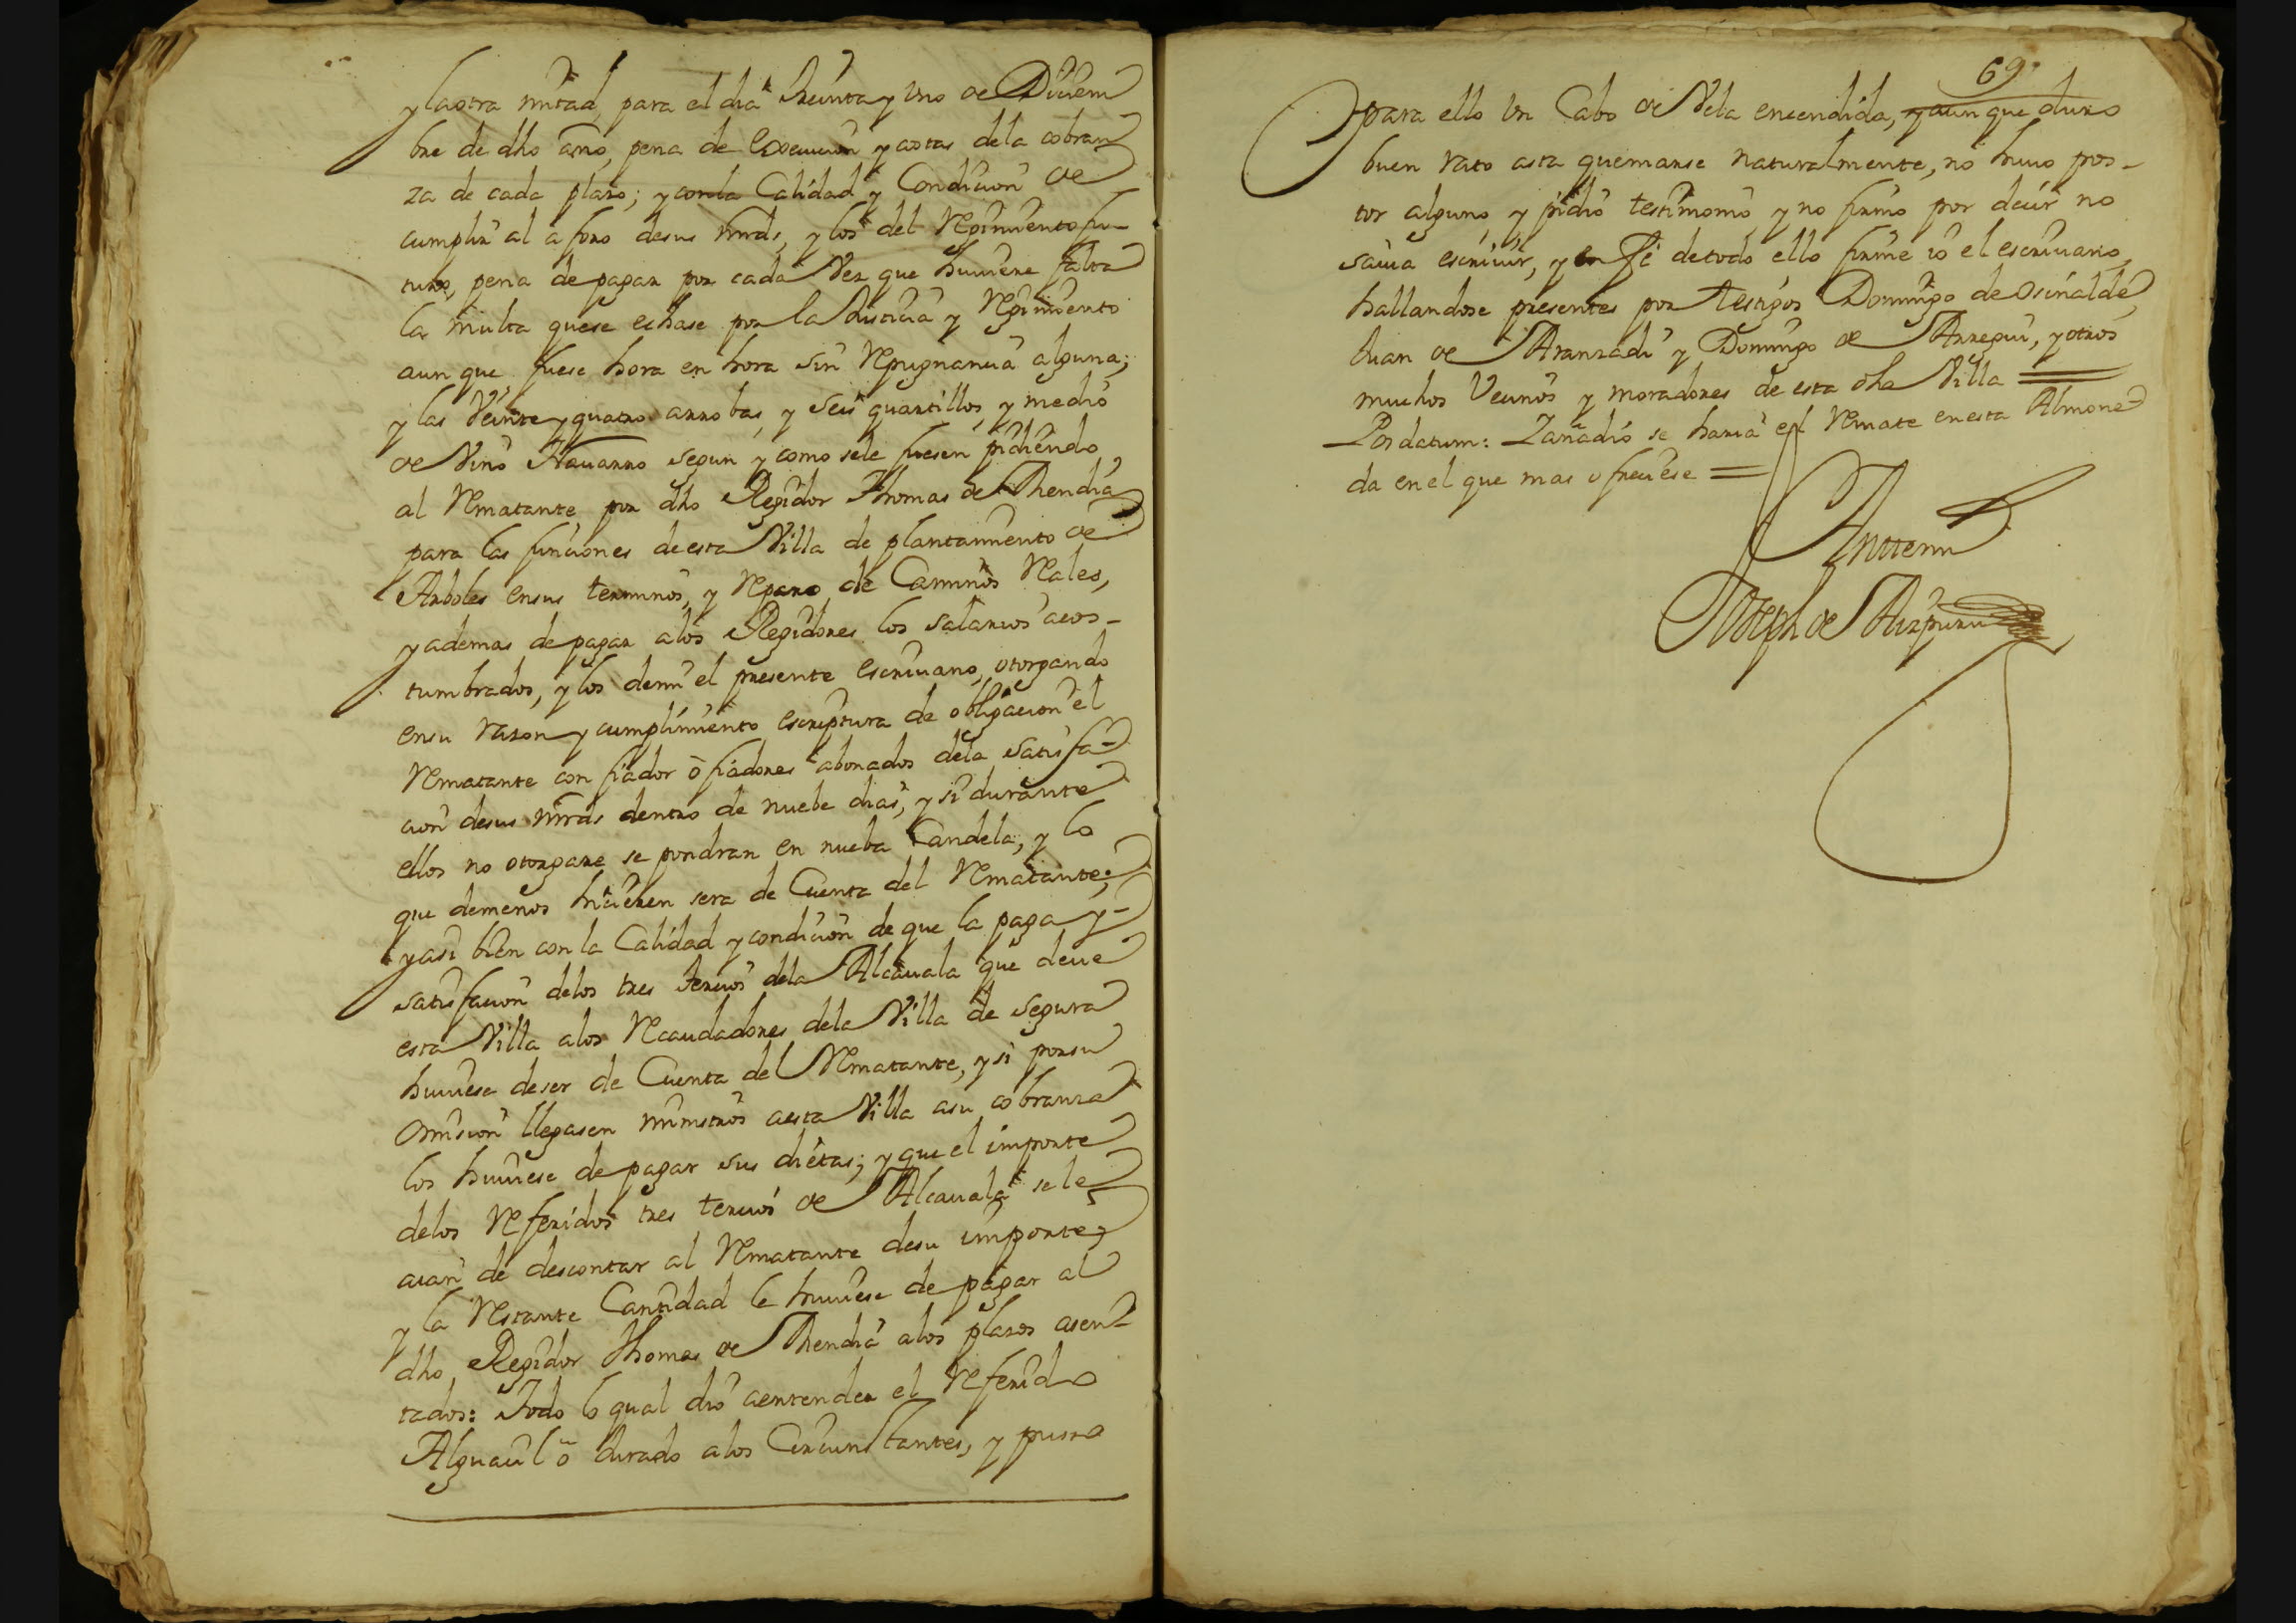 y la otra mitad, para el dia treinta y uno de Diciem
bre de dho año, pena de Execucion y costas dela cobran
za de cada plazo; y con la Calidad y Condicion de
cumplir al aforo desus mrds, y los del Regimiento fu-
turo, pena de pagar por cada Vez que huuiere falta
la multa quese echase por la Justicia y Regimiento
aun que fuese hora en hora sin Repugnancia alguna;
y las Veinte y quatro arrobas, y seis quartillos, y medio
de Vino Nauarro segun y como sele fuesen pidiendo
al Rematante por dho Regidor Thomas de
para las funciones de esta Villa de plantamiento de
Arboles ensus terminos, y Reparo de Caminos Rales,
y ademas de pagar alos Regidores los salarios acos-
tumbrados, y los demi el presente escriuano, otorgando
ensu razon y cumplimiento escriptura de obligacion el
Rematante con fiador ò fiadores abonados dela satisfa-
cion desus mrds dentro de nuebe dias, y si durante
ellos no otorgare se pondran en nueba Candela, y lo
que demenos hicieren sera de Cuenta del Rematante;
y asi bien con la Calidad y condicion de que la paga y-
satisfacion delos tres tercios dela Alcauala que deue
esta Villa alos Recaudadores dela Villa de Segura
huuiese deser de Cuenta del Rematante, y si porsu
Omision llegasen ministros aesta Villa asu cobranza
los huuiese de pagar sus dietas; y que el importe
delos Referidos tres tercios de Alcauala se le
aian de descontar al Rematante desu importe,
y la Restante Cantidad le huuiese de pagar al
dho Regidor Thomas de alos plazos asen-
tados: Todo lo qual dio aentender el Referido
Alguacil ô Jurado alos Circunstantes, y puso
69
para ello Un Cabo de Vela encendida, y aun que duro
buen rato asta quemarse naturalmente, no huuo pos-
tor alguno, y pidio testimonio y no firmo por decir no
sauia escriuir, y en Fe detodo ello firme io el escriuano,
hallandose presentes por testigos Domingo de Osinalde,
Juan de Aranzadi y Domingo de Arregui, y otros
muchos Vecinos y moradores de esta dha Villa =
Posdatum: Zañadio se haria el Remate en esta Almone
da en el que mas ofreciese =
Antemi
Joseph de Aizpuru